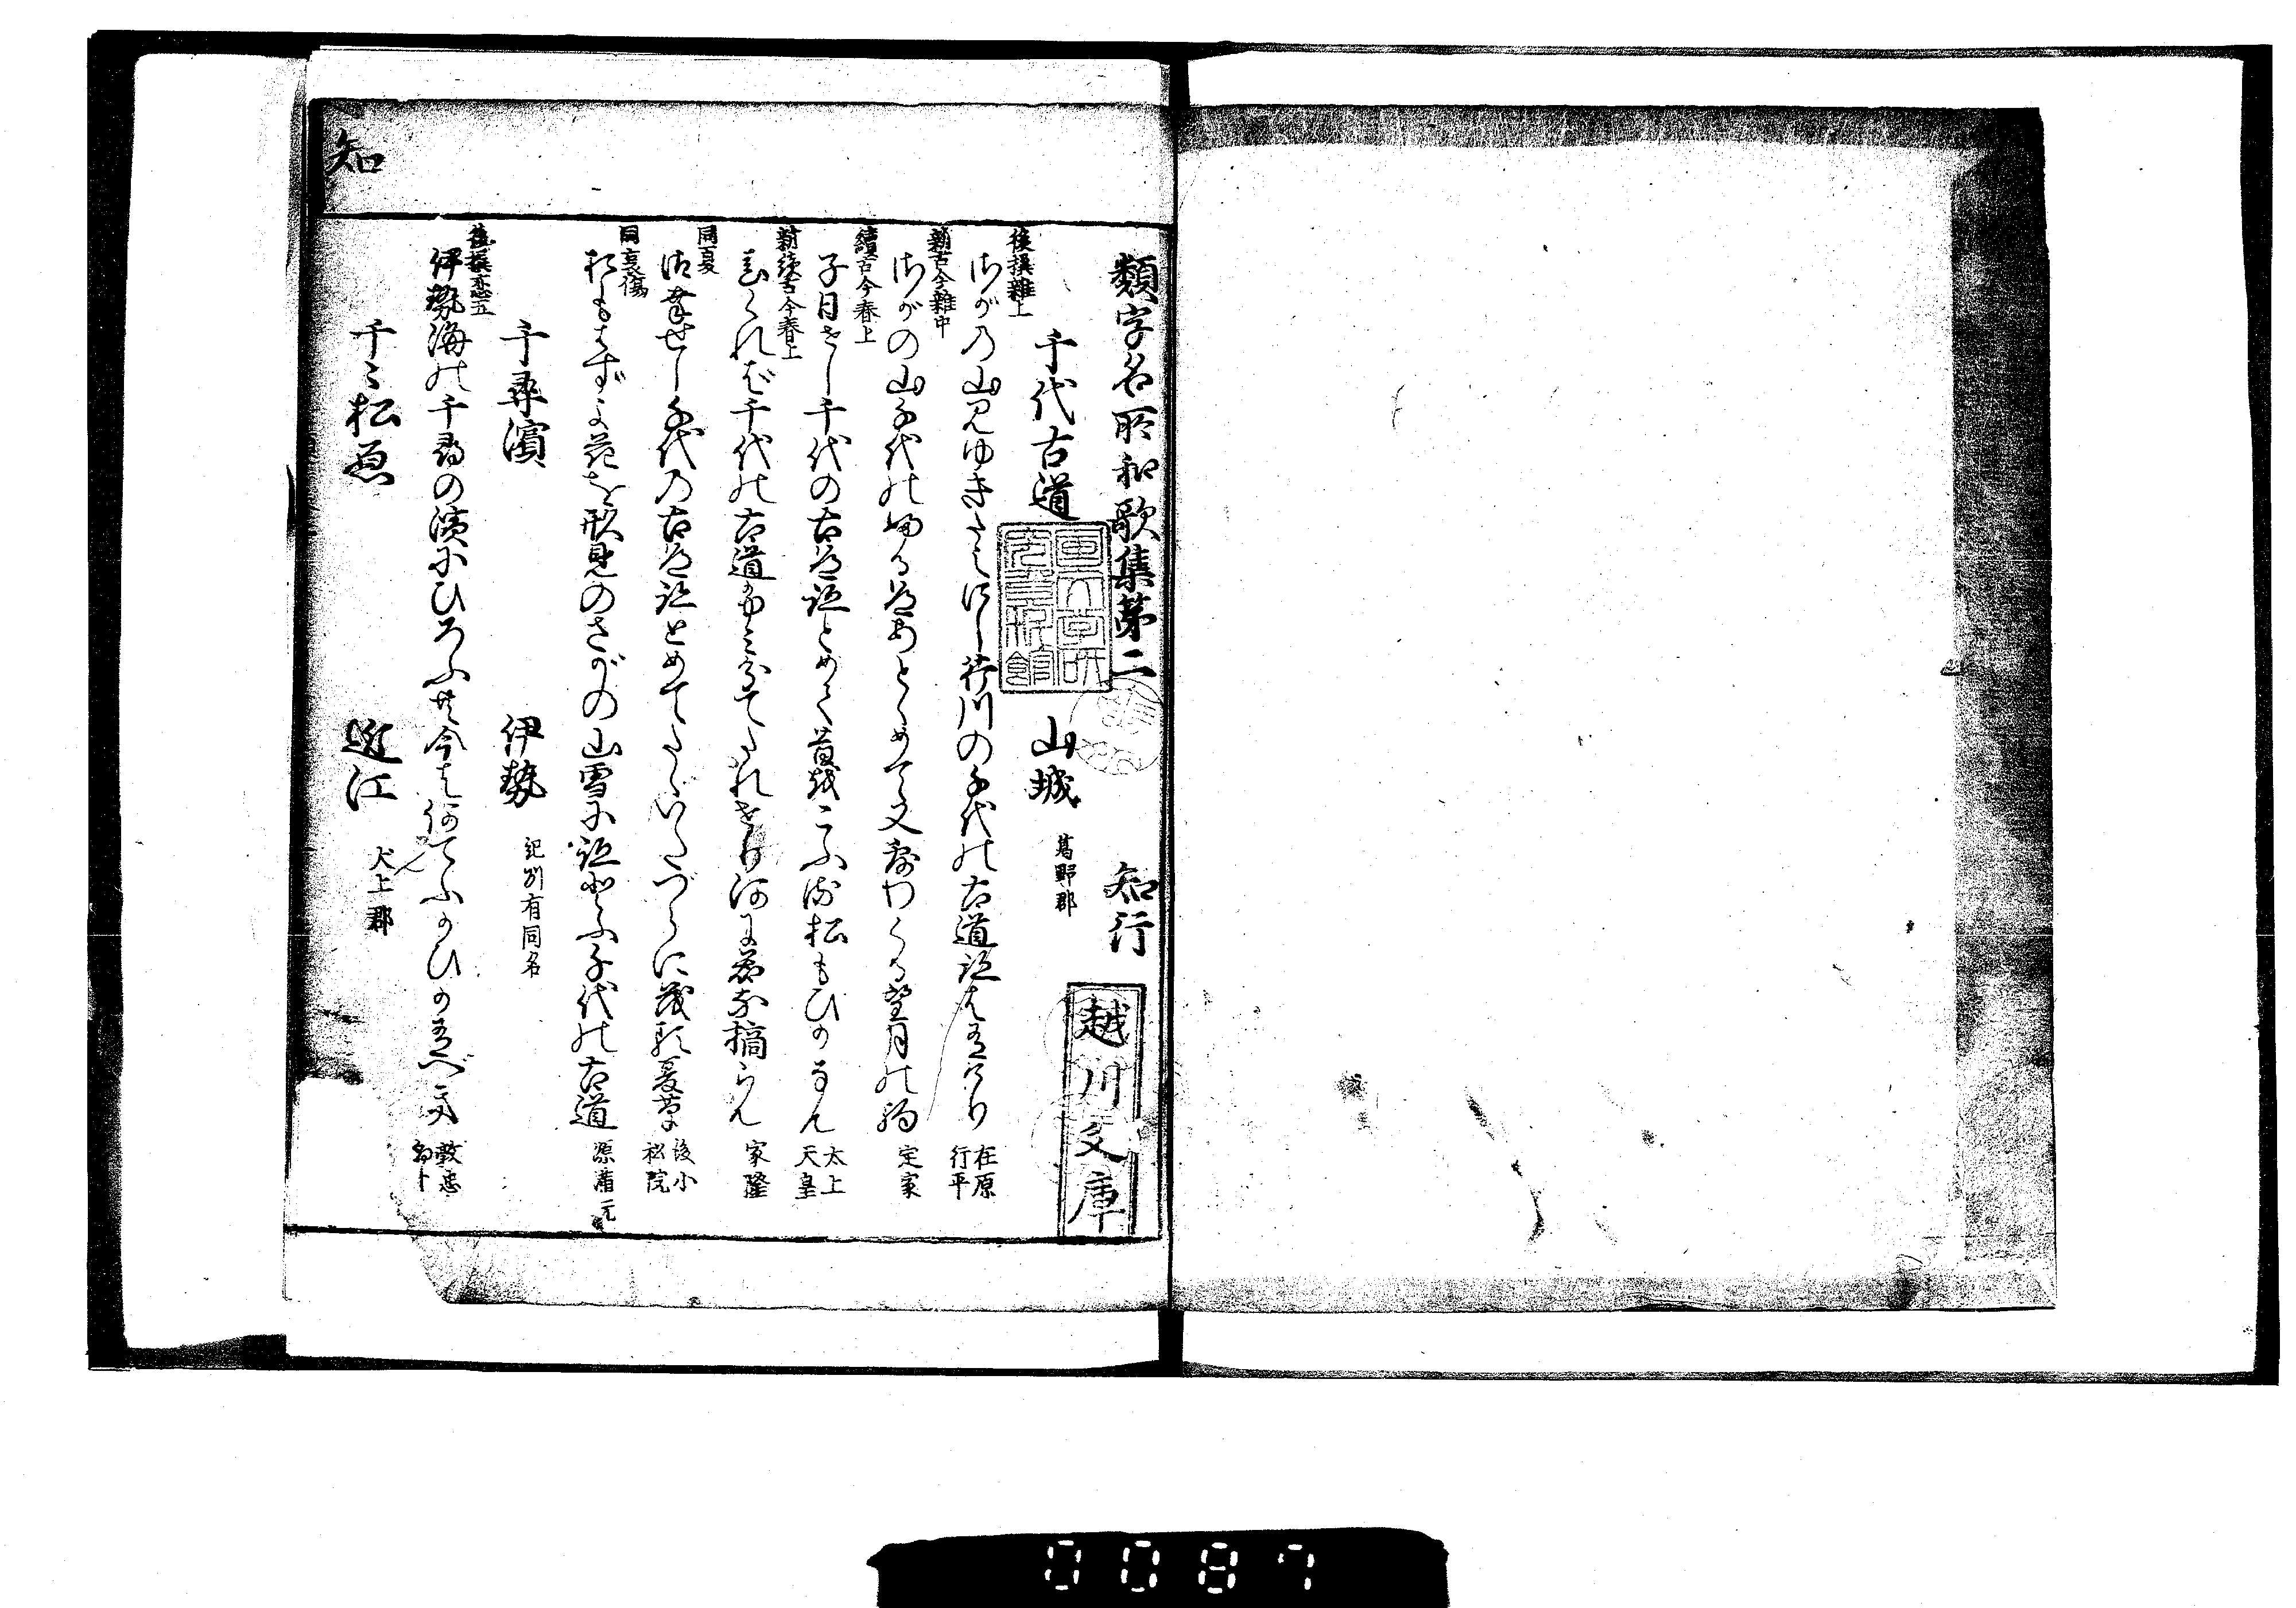 類字名所和歌集第二 知行
千代古道 山城 葛野郡
後撰雑上
さがの山みゆきたえにし芹川の千代の古道跡は有けり 在原行平
新古今雑中
さがの山千代のふる道あととめて又露わくる望月の駒 定家
續古今春上
子日せし千代の古道跡とめて昔をこふる松もひかなん 太上天皇
新續古今春上
千代の古道 摘らん 家隆
同夏
御幸せし千代の古道跡とめてたゞいたづらに茂る夏草 後小松院
同哀傷
花を形見のさがの山雪に跡とふ千代の古道 源満元
千尋濱 伊勢 紀州有同名
後撰恋五
伊勢海の千尋の濱にひろふ共今は何てふかひか有べき 敦忠
千々松原 近江 犬上郡
知
越川文庫
0087